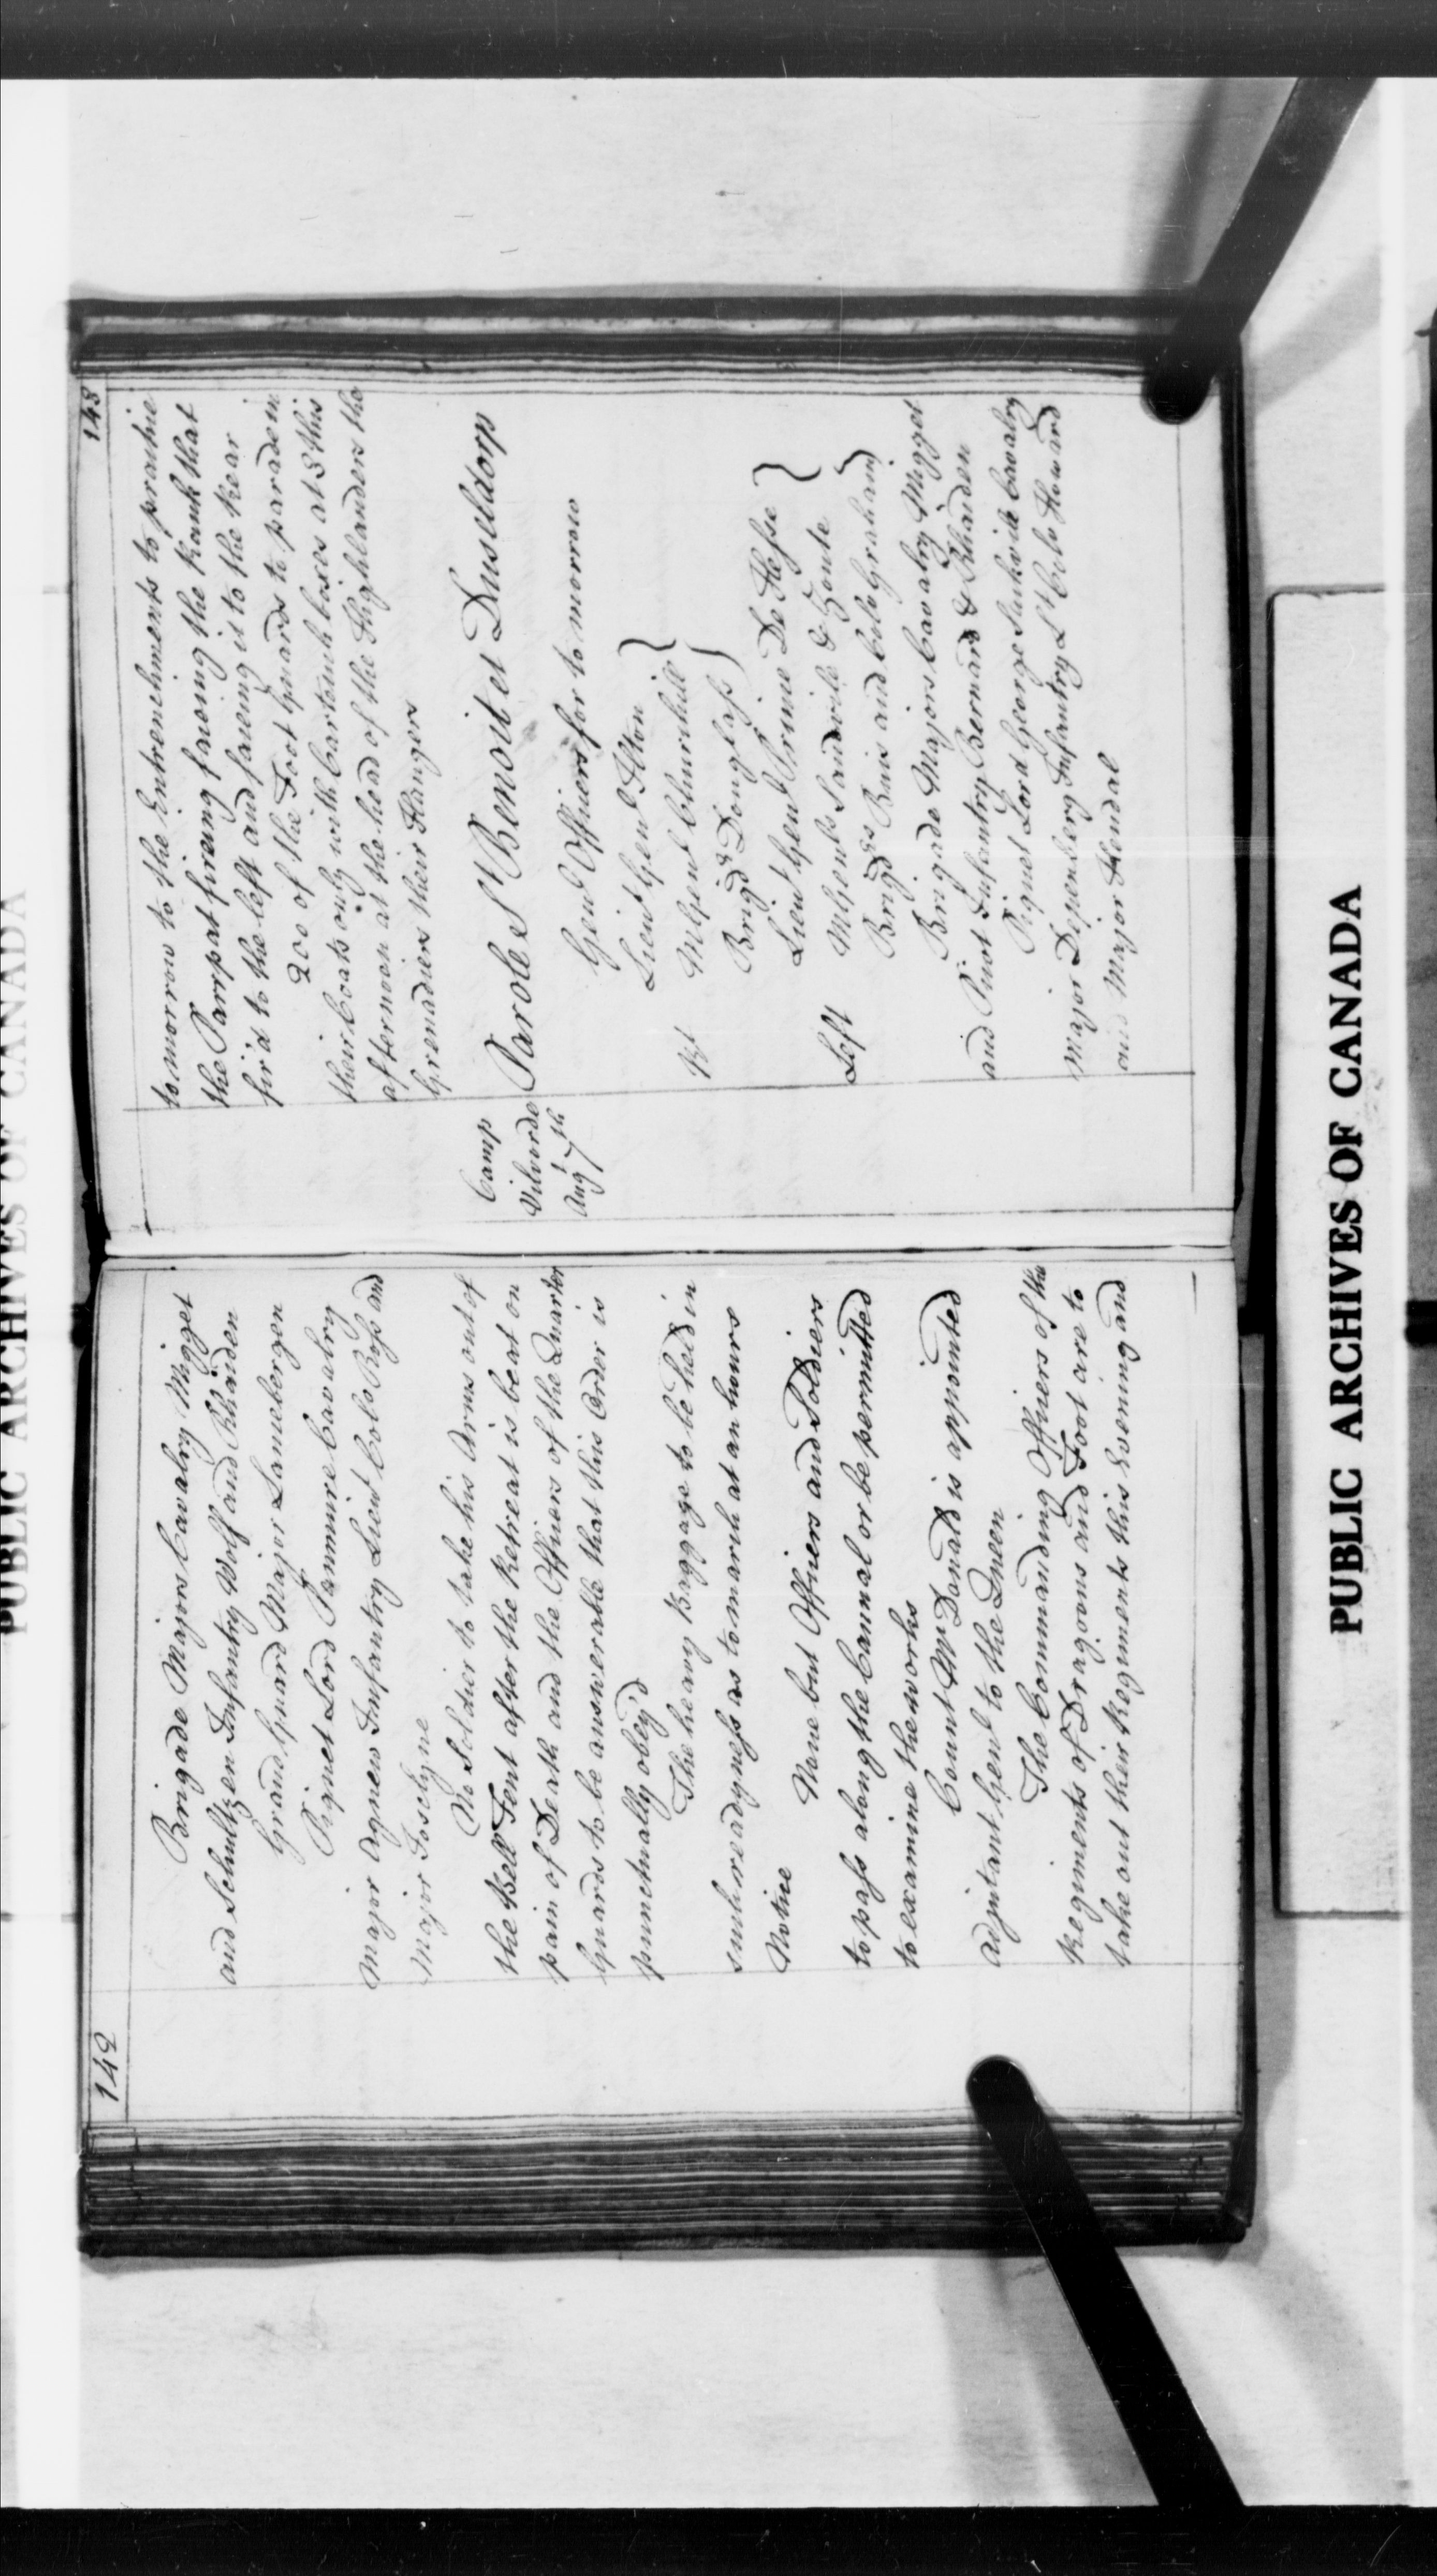 142
Brigade Majors Cavalry Migget
and Schultzen Infantry Wolf and Rhaiden
Grand Guard Major Lamebergen
Piquet Lord Panmure Cavalry
Major Agnew Infantry Lieut Colo Ross and
Major Joselyne
No Soldier to take his Arms out of
the Bell Tent after the Retreat is beat on
pain of Death and the Officers of the Quarter
Guards to be answerable that this Order is
punctually obey'd
The heavy Baggage to be held in
such readyness as to march at an hours
Notice
None but Officers and Soldiers
to pass along the Cannal or be permitted
to examine the works
Count McDonald is appointed
Adjutant Genl to the Queen
The Commanding Officers of the
Regiments of Dragoons and Foot are to
take out their Regiments this Evening and
148
tomorrow to the Entrenchments to practice
the Parrpat fireing facing the Rank that
fir'd to the left and faceing it to the Rear
200 of the Foot Guards to parade in
their Coats only with Cartouch boxes at 3 this
afternoon at the head of the Highlanders the
Grenadiers their Hangers
Camp
Vilvorde
Augt 7th
Parole St Benoit et Duseldorp
Genl Officers for to morrow
Lieut Genl Ilton
Rt MGenl Churchill
Brigdr Douglass
Lieut Genl Prince De Hesse
Left MGenls Landvile & Zonte
Brigdrs Buis and Colo Graham
Brigade Majors Cavalry Migget
and Piiot Infantry Bernard & Rhaiden
Piquet Lord George Sackvile Cavalry
Major Diepenberg Infantry Lt Colo Howard
and Major Hendal
PUBLIC ARCHIVES OF CANADA
PUBLIC ARCHIVES OF CANADA